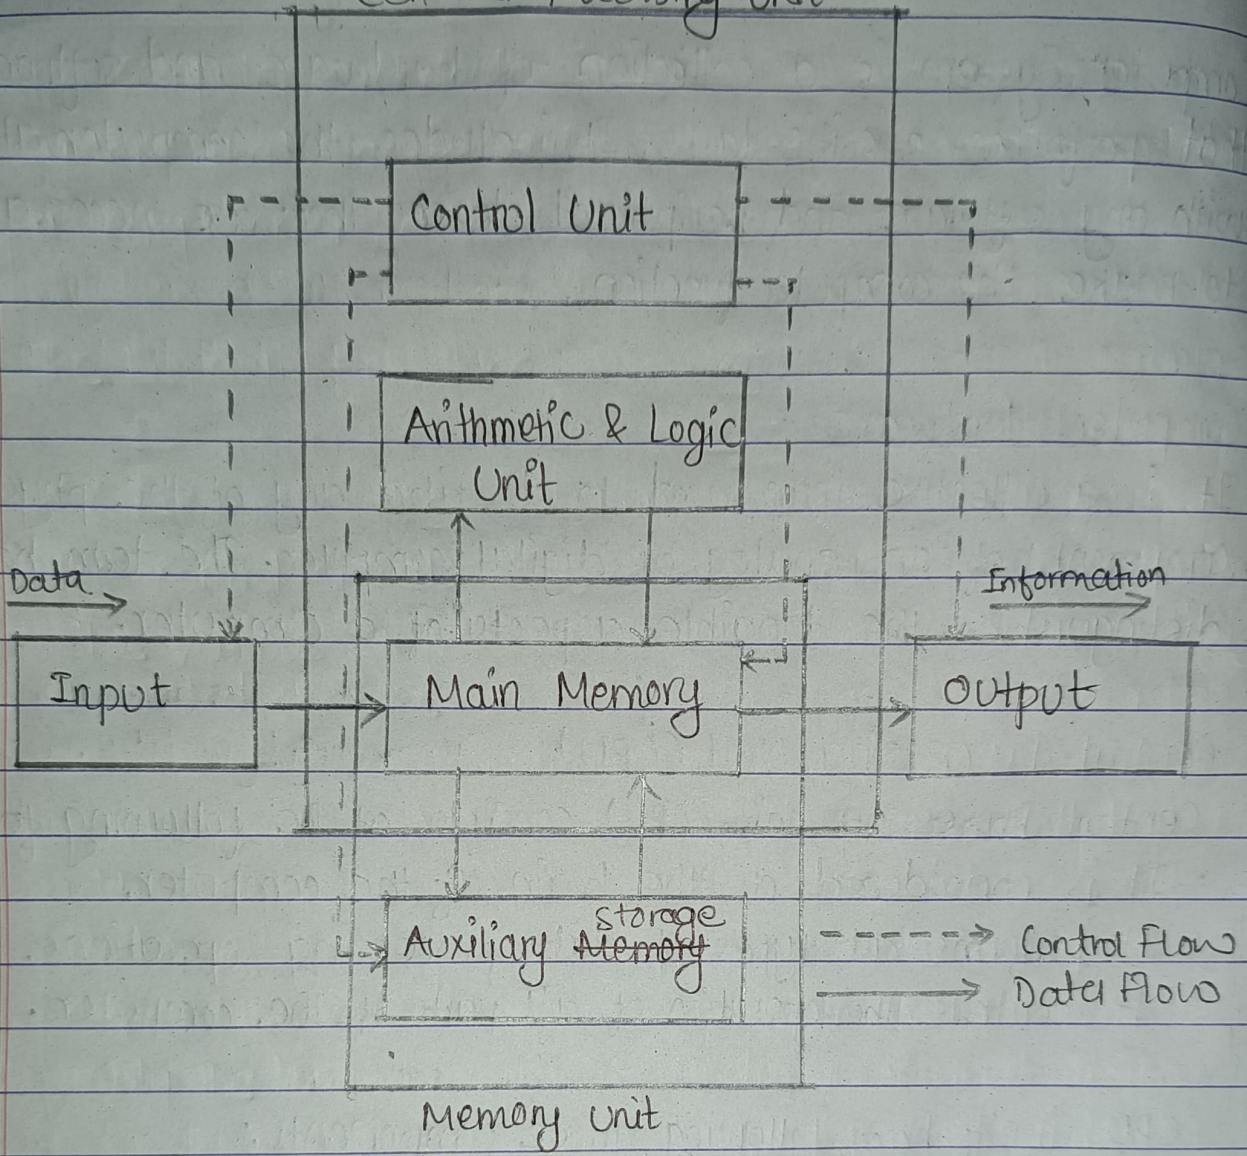 Unit
Control Unit
Arithmetic & Logic
Unit
Data
Information
Input
Main Memory
Output
storage
Auxiliary Memory
Control Flow
Data Flow
Memory Unit